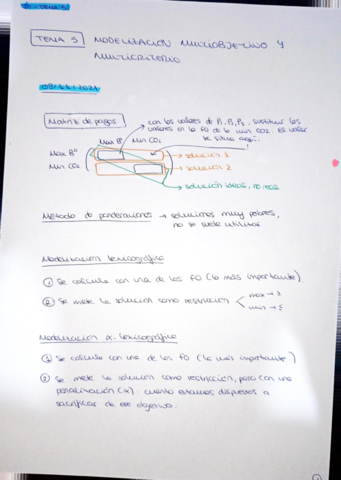 TEMA 5
TEMA 5 MODELIZACIÓN MULTIOBJETIVO Y
MULTICRITERIO
Matriz de pagos
con los valores de P1, P2, P3, sustituir los
valores en la FO de la min CO2. El valor
se sitúa aquí.
Max Bº Min CO2
Max Bº
Min CO2
solución 1
solución 2
solución ideal, no real
Método de ponderaciones → soluciones muy pobres,
no se suele utilizar
Modelización lexicográfica
① Se calcula con una de las FO (la más importante)
② Se mete la solución como restricción
max →
min →
Modelización α-lexicográfica
① Se calcula con una de las FO (la más importante)
② Se mete la solución como restricción, pero con una
penalización (α) cuánto estamos dispuestos a
sacrificar de ese objetivo.